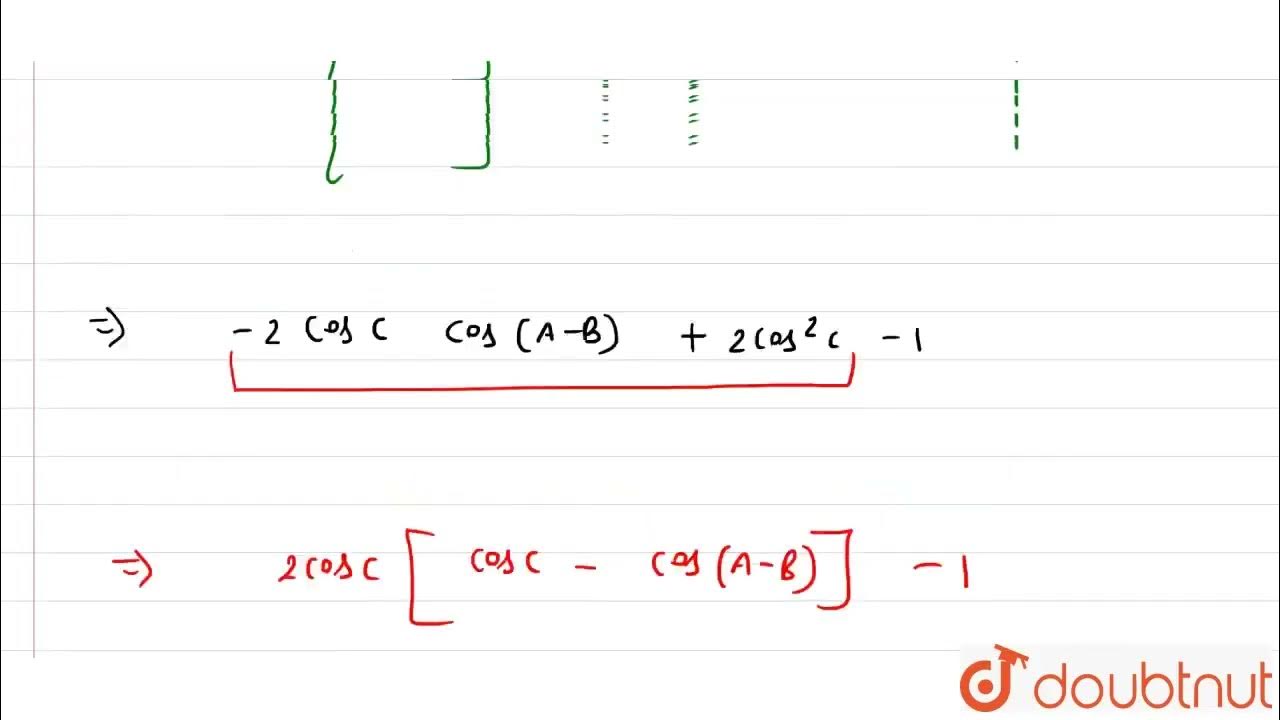 ⇒ - 2 cos C cos (A-B) + 2 cos² C - 1
⇒ 2 cos C [ cos C - cos (A-B) ] - 1
doubtnut